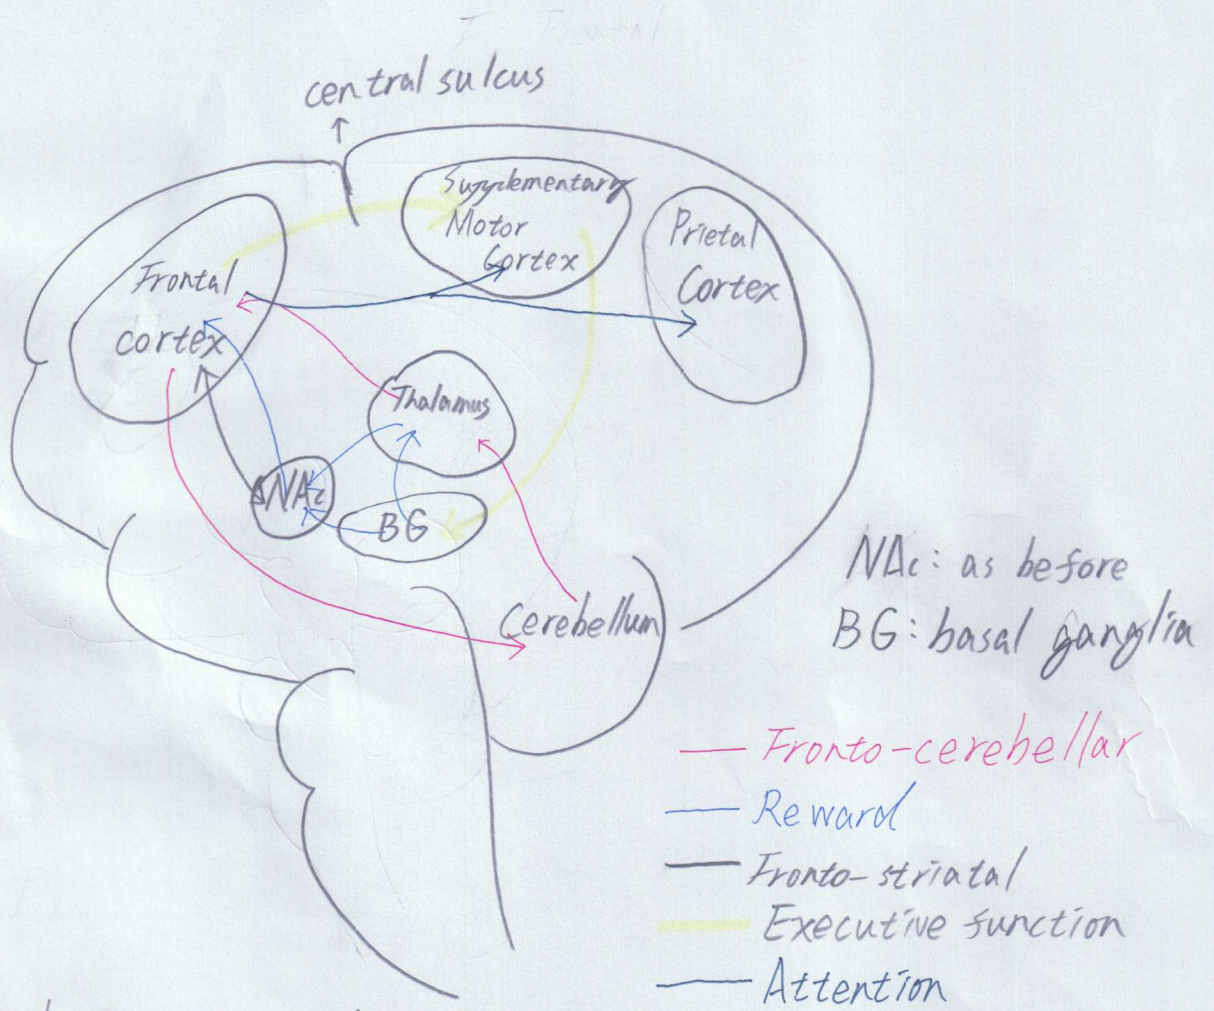 central sulcus
Supplementary
Motor
Cortex
Prietal
Cortex
Frontal
cortex
Thalamus
NAc
BG
Cerebellum
NAc: as before
BG: basal ganglia
Fronto-cerebellar
Reward
Fronto-striatal
Executive function
Attention